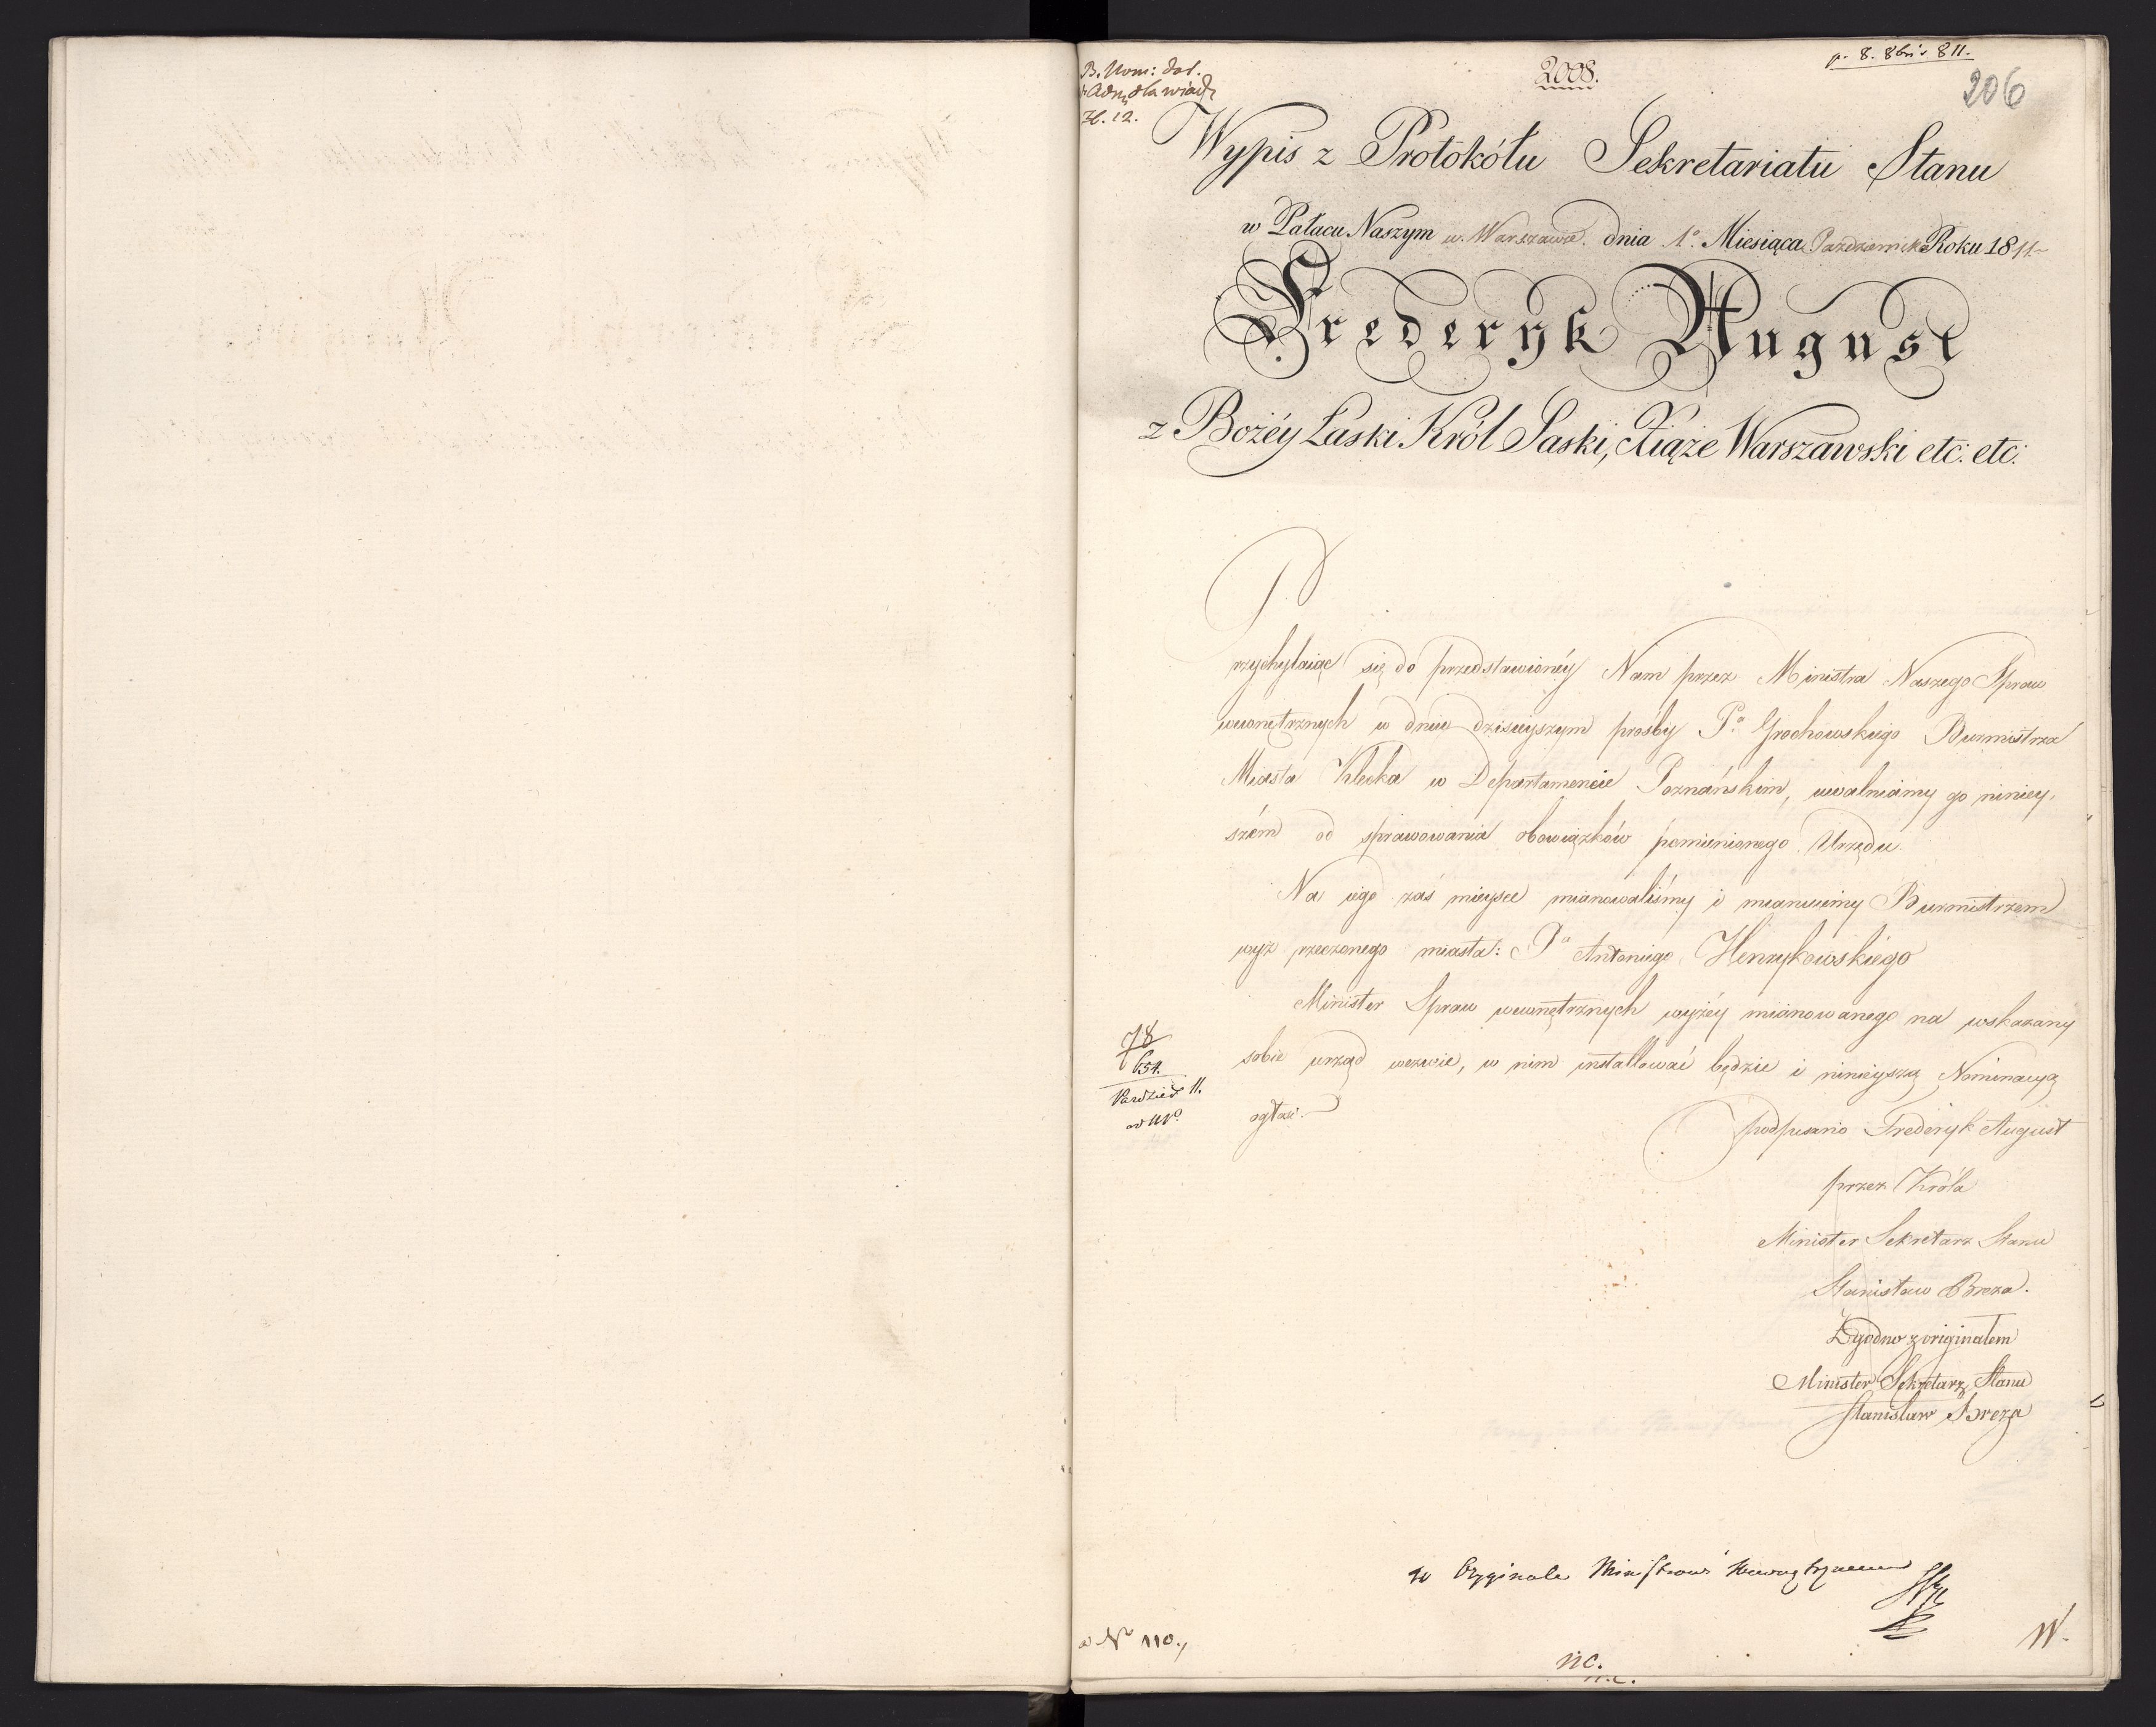 p. 8. 8bris 811.
B. Nom: dol.
2008.
206
Wypis z Protokółu Sekretariatu Stanu
w Pałacu Naszym w Warszawie dnia 1o. Miesiąca Październik Roku 1811
Fryderyk August
z Bożéy Łaski Król Saski, Xiąże Warszawski etc: etc:
Przychylaiąc się do przedstawionéy Nam przez Ministra Naszego Spraw
wewnętrznych w dniu dzisieyszym prośby Pa. Grochowskiego Burmistrza
Miasta Klecka w Departamencie Poznańskim, uwalniamy go niniey,
szém od sprawowania obowiązków pomienionego Urzędu.
Na iego zaś mieysce mianowaliśmy i mianuiemy Burmistrzem
wyż rzeczonego miasta: Pa Antoniego Henrykowskiégo
Minister Spraw wewnętrznych wyżéy mianowanego na wskazany
sobie urząd wezwie, w nim installować będzie i ninieyszą Nominacyą
ogłosi.
78
654.
Paździer 11.
podpisano Frederyk August
przez Króla
Minister Sekretarz Stanu
Stanisław Breza.
Zgodno z originałem
Minister Sekretarz Stanu
Stanisław Breza
w Oryginale Ministrowi Wewnętrznemu
No 110.,
W.
nc.
n.c.